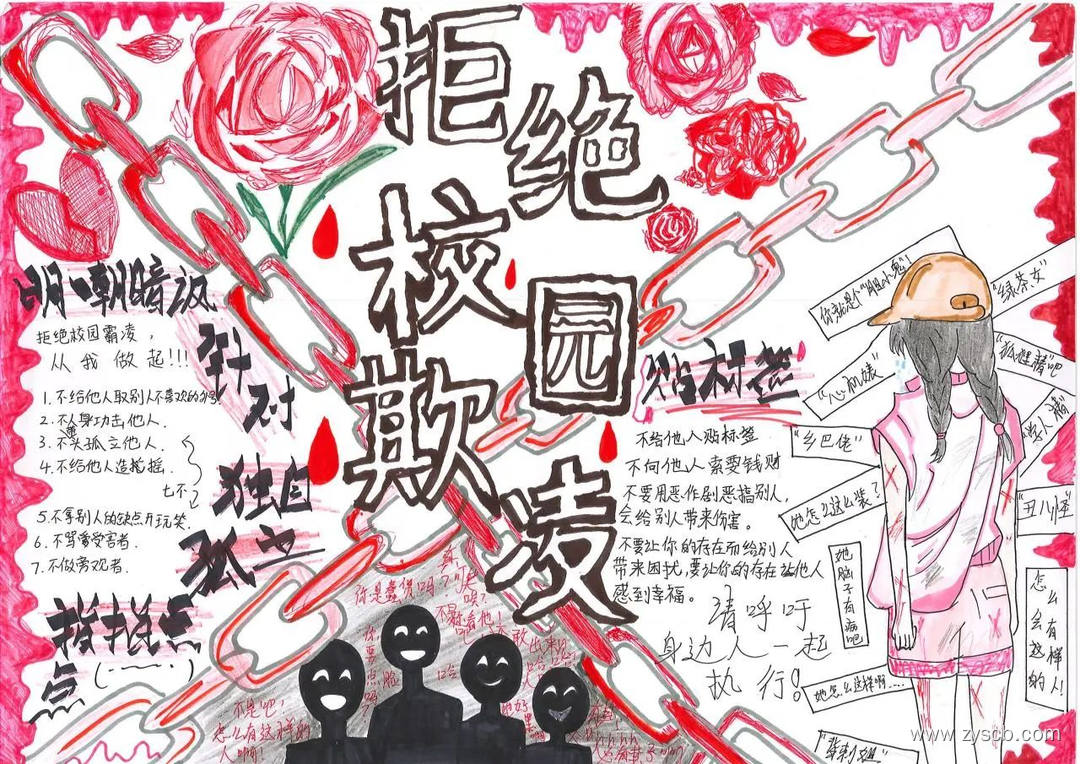 拒绝
校园
欺凌
明嘲暗讽
拒绝校园霸凌，
从我做起!!!
1.不给他人取别人不喜欢的外号.
2.不人身功击他人.
3.不带头孤立他人.
4.不给他人造谣.
七不
5.不拿别人的缺点开玩笑.
6.不骂受害者.
7.不做旁观者.
针对
独自
孤立
指指点点
(······)
贴标签
不给他人贴标签
不向他人索要钱财
不要用恶作剧恶搞别人,
会给别人带来伤害。
不要让你的存在而给别人
带来困扰,要让你的存在让他人
感到幸福。
请呼吁
身边人一起
执行!
你就是个"胆小鬼"!
"绿茶女"
"狐狸精"吧
"心机婊"
"学人精"
"乡巴佬"
她怎么这么装?
"丑八怪"
她脑子有病吧
怎么会有这样的人!
她怎么这样啊....
你是蠢货吗?
不是吧,
怎么有这样的
人啊!
www.zyscb.com